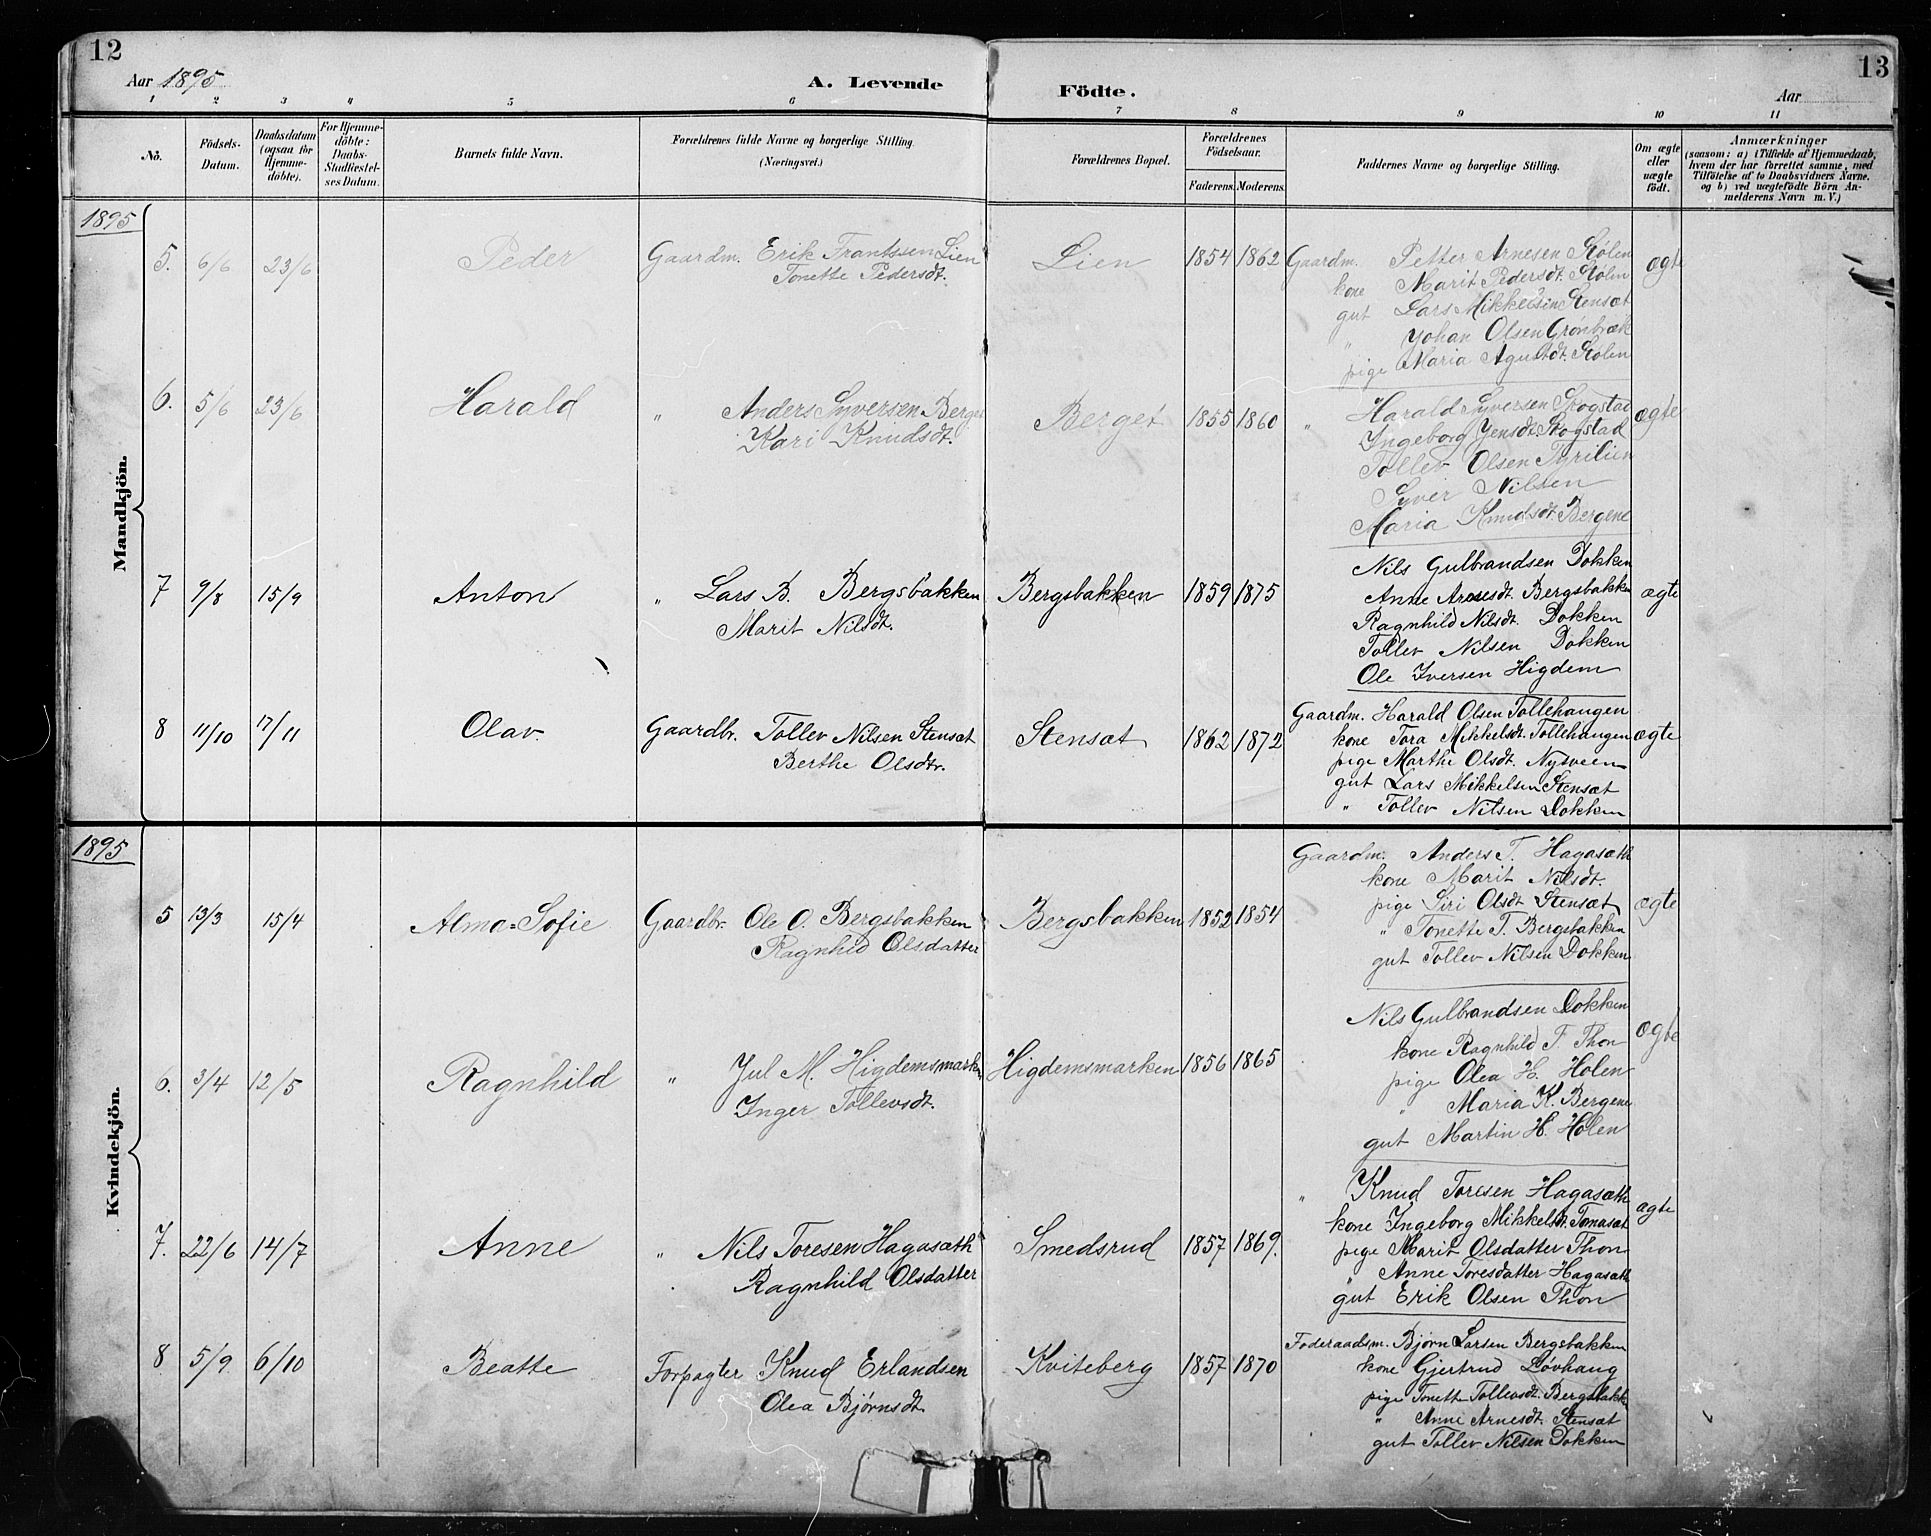 12
13
Aar 1895
A. Levende
Födte.
Aar
1 2 3 4 5 6 7 8 9 10 11
No.
Födsels-Datum.
Daabsdatum (ogsaa for Hjemme-döbte).
For Hjemme-döbte: Daabs-Stadfæstel-ses Datum.
Barnets fulde Navn.
Forældrenes fulde Navne og borgerlige Stilling.
(Næringsvei.)
Forældrenes Bopæl.
Forældrenes Födselsaar.
Faderens. Moderens.
Faddernes Navne og borgerlige Stilling.
Om ægte eller uægte födt.
Anmærkninger
(saasom: a) i Tilfælde af Hjemmedaab,
hvem der har forrettet samme, med
Tilföielse af to Daabsvidners Navne,
og b) ved uægtefödte Börn An-
melderens Navn m. V.)
Mandkjön.
1895
5. 6/6 23/6 Peder Gaardm. Erik Frantssen Lien Lien 1854 1862 Gaardm. Petter Arnesen Stølen ægte
Tonette Pedersdt. kone Marit Pedersdt. Stølen
gut Lars Mikkelsen Stensæt
" Johan Olsen Grønbræk
pige Maria Agustdt. Stølen
6. 5/6 23/6 Harald " Anders Syversen Berget Berget 1855 1860 " Harald Syversen Skogstad ægte
Kari Knudsdt. Ingeborg Jensdt. Skogstad
Tollev Olsen Tyrilien
Syver Nilsen
Maria Knudsdt. Bergene
7 9/8 15/9 Anton " Lars B. Bergsbakken Bergsbakken 1859 1875 Nils Gulbrandsen Dokken ægte
Marit Nilsdt. Anne Arnesdt. Bergsbakken
Ragnhild Nilsdt. Dokken
Tollev Nilsen Dokken
Ole Iversen Higdem
8 11/10 17/11 Olav. Gaardbr. Tollev Nilsen Stensæt Stensæt 1862 1872 Gaardm. Harald Olsen Tollehaugen ægte
Berthe Olsdtr. kone Tora Mikkelsdt. Tollehaugen
pige Marthe Olsdt. Nysveen
gut Lars Mikkelsen Stensæt
" Tollev Nilsen Dokken
Kvindekjön.
1895
5 13/3 15/4 Alma=Sofie Gaardbr. Ole O. Bergsbakken Bergsbakken 1852 1854 Gaardm. Anders T. Hagasæth ægte
Ragnhild Olsdatter kone Marit Nilsdt.
pige Siri Olsdt Stensæt
" Tonette T. Bergsbakken
gut Tollev Nilsen Dokken
6. 3/4 12/5 Ragnhild " Jul M. Higdemsmarken Higdemsmarken 1856 1865 Nils Gulbrandsen Dokken ægte
Inger Tollevsdt. kone Ragnhild T. Thon
pige Olea H. Holen
" Maria K. Bergene
gut Martin H. Holen
7. 22/6 14/7 Anne " Nils Toresen Hagasæth Smedsrud 1857 1869. " Knud Toresen Hagasæth ægte
Ragnhild Olsdatter kone Ingeborg Mikkelsdt. Tomasæt
pige Marit Olsdatter Thon
" Anne Toresdatter Hagasæth
gut Erik Olsen Thon
8 5/9. 6/10 Beatte Forpagter Knud Erlandsen Kviteberg 1857 1870 Føderaadsm. Bjørn Larsen Bergsbakken
Olea Bjørnsdt. kone Gjertrud Løvhaug
pige Tonette Tollevsdt. Bergsbakk
" Anne Arnesdt. Stensæt
gut Tollev Nilsen Dokken